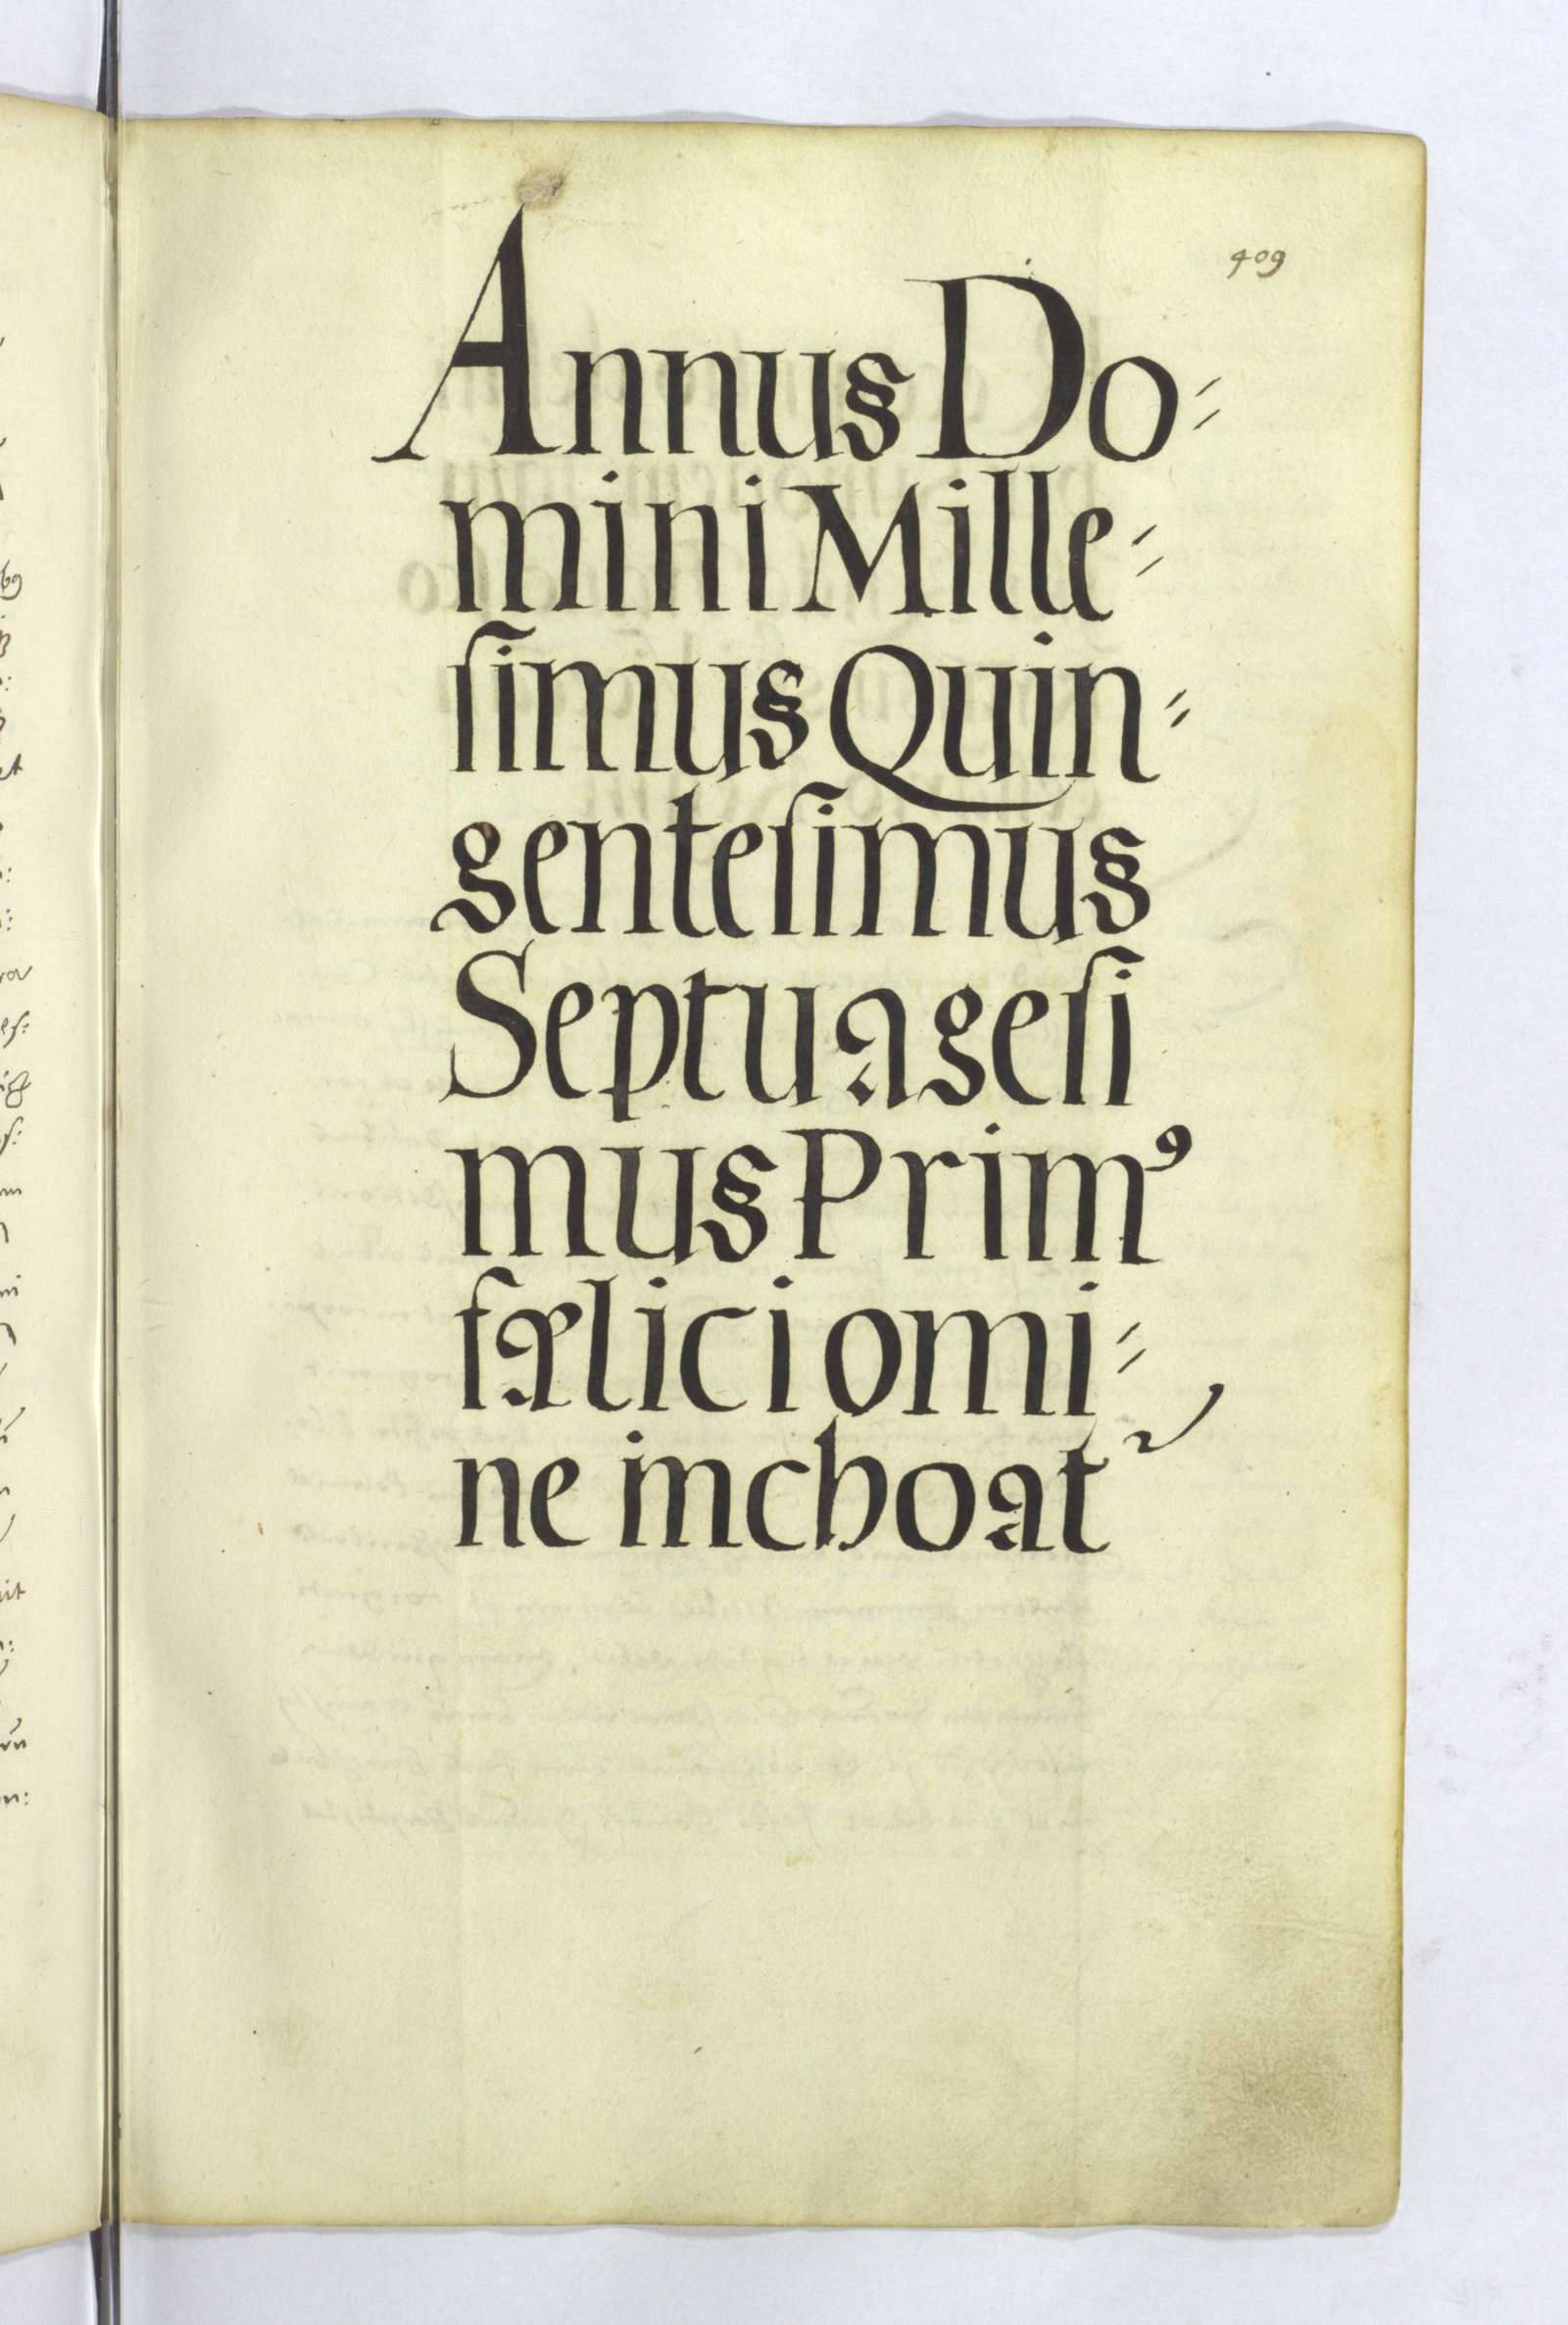 409
Annus Do=
mini Mille=
ſimus Quin=
genteſimus
Septuageſi
mus Primꝰ
fælici omi=
ne inchoat